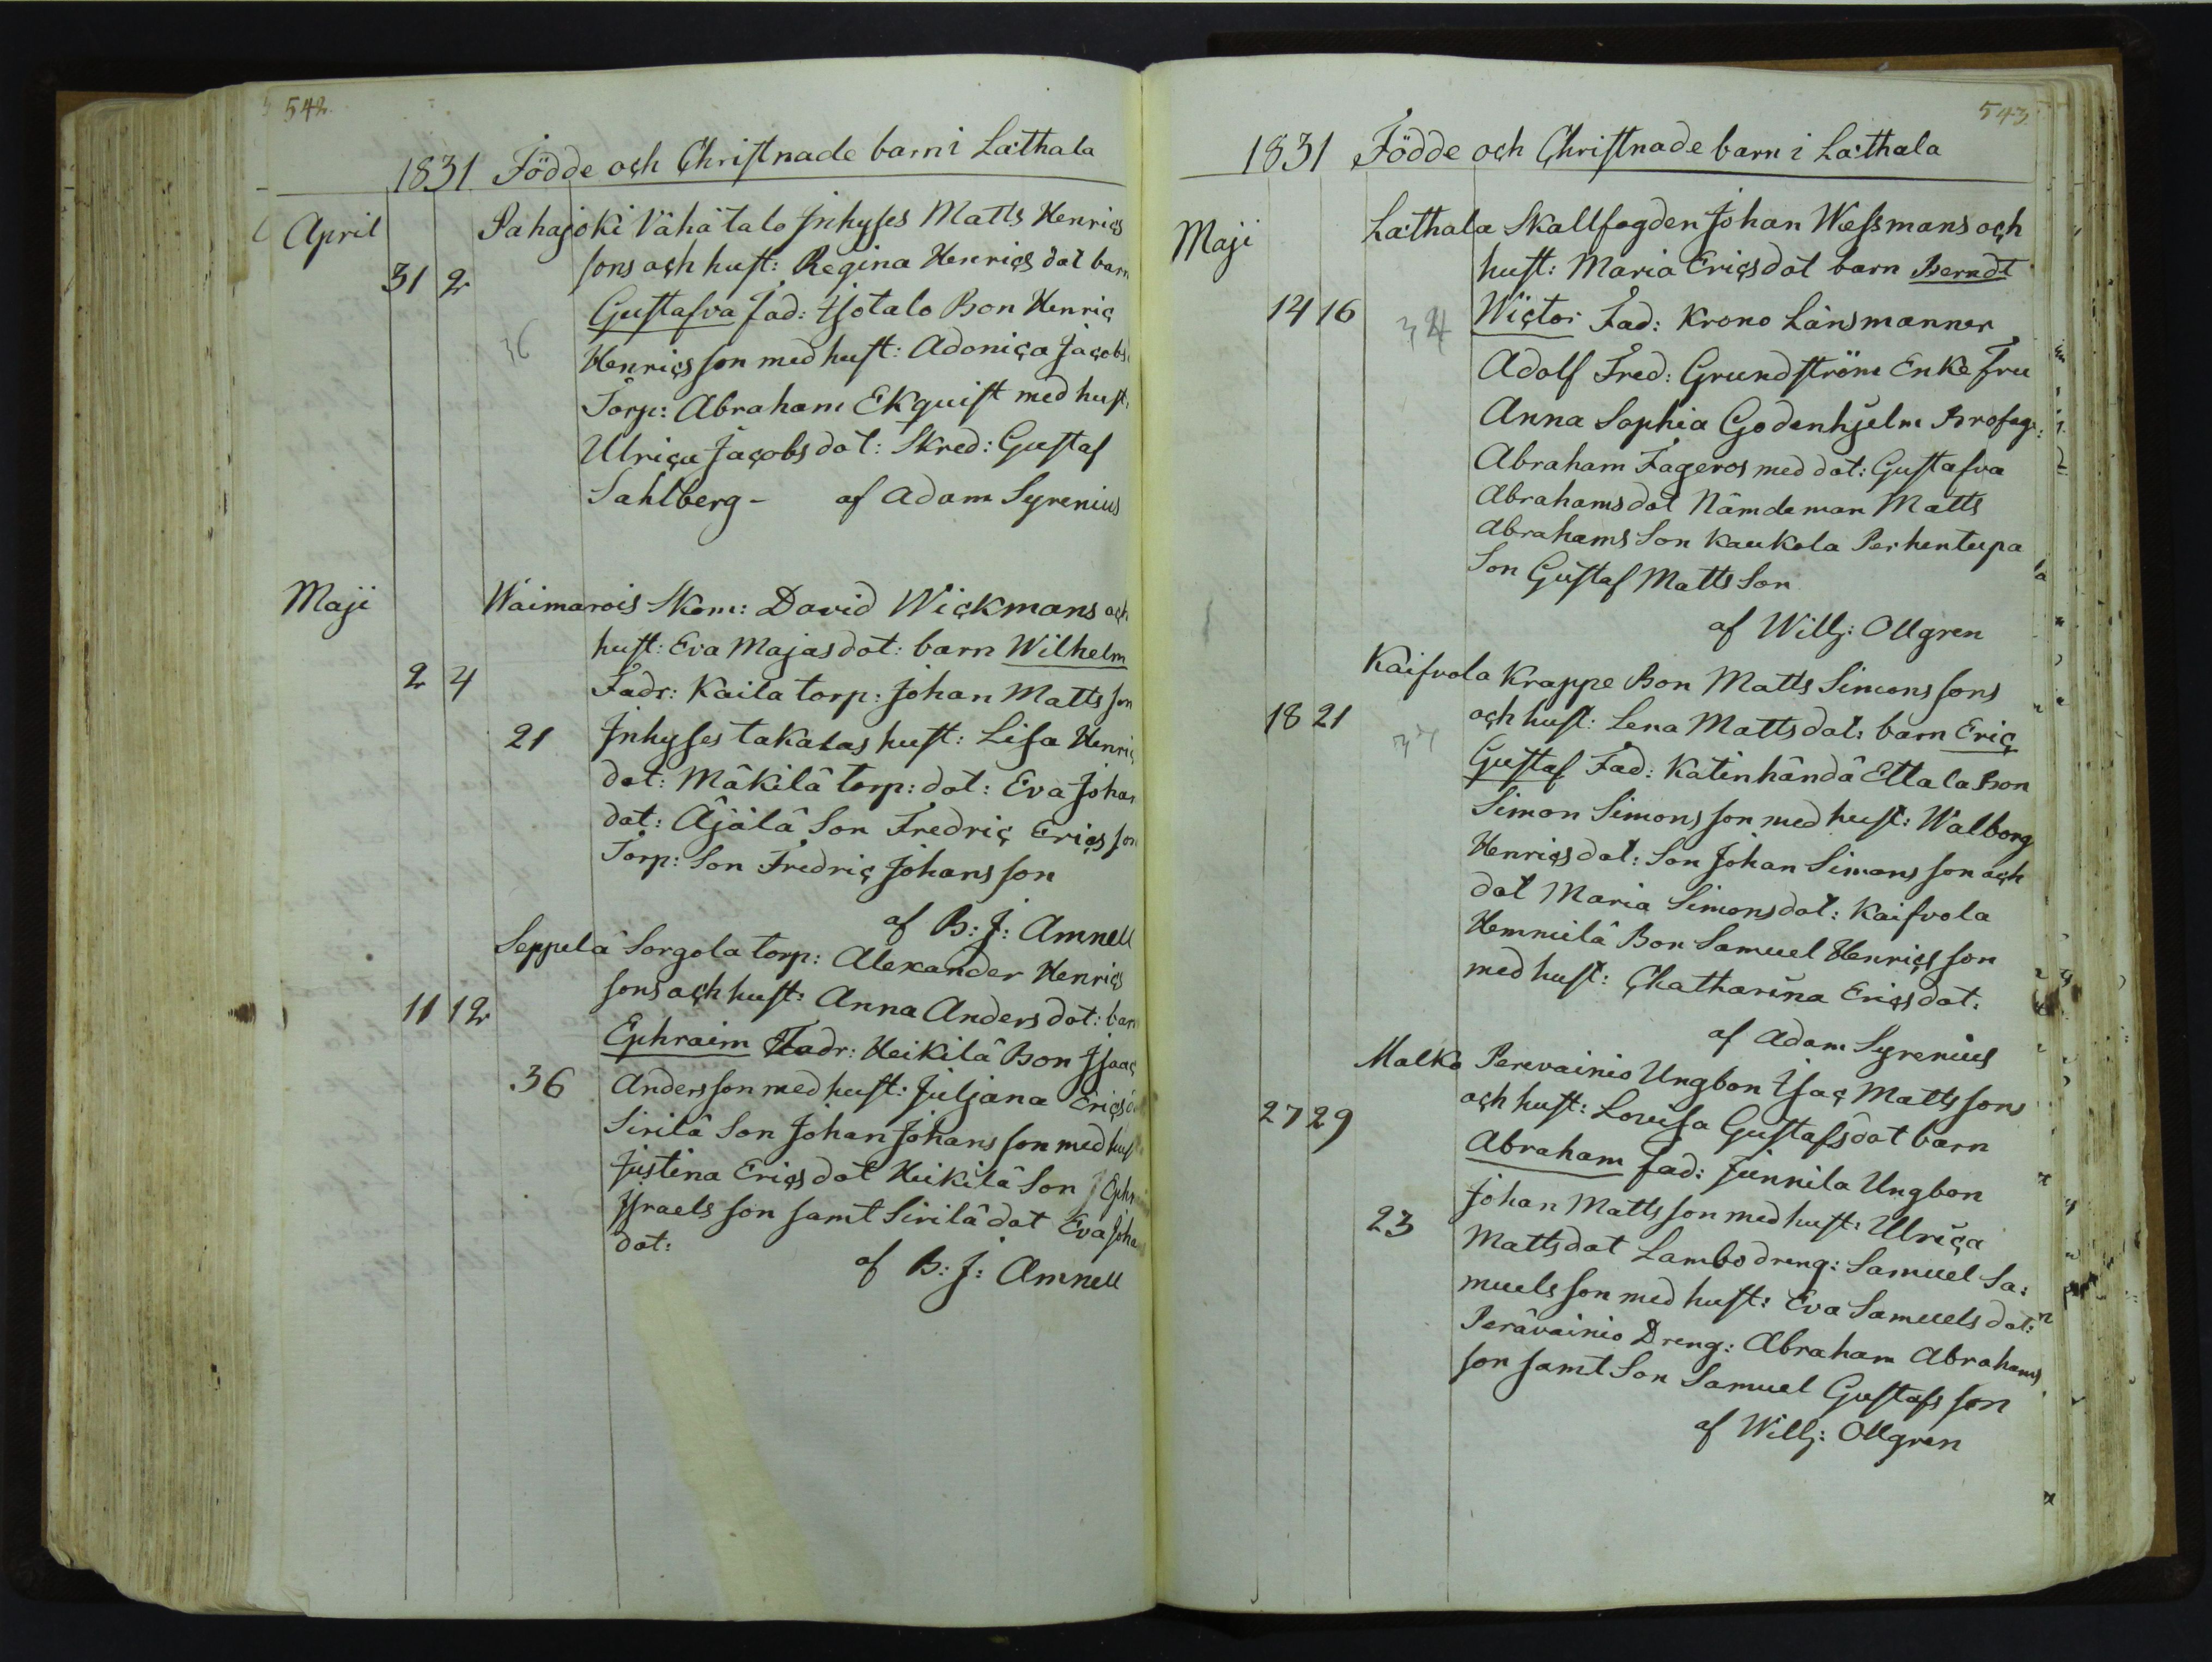 542
1831 Födde och Christnade barn i Laithala
April
Pahajoki Vähätalo Inhyses Matts Henrics
31 2 sons och hust: Regina Henrics dat barn
Gustafva Fad: Isotalo Bon Henric
36 Henrics son med hust: Adonica Jacobs
Torp: Abraham Ekquist med hust:
Ulrica Jacobs dot: Skred: Gustaf
Sahlberg - af Adam Syrenius
Maji
Waimarois Skom: David Wickmans och
hust: Eva Majasdot: barn Wilhelm
2 4 Fadr: Kaila torp: Johan Matts son
21 Inhyses Takalas hust: Lisa Henric
dot: Mäkilä torp: dot: Eva Johan
dat: Äjälä Son Fredric Erics son
Torp: Son Fredric Johans son
af B: J: Amnell
Seppelä Sorgola torp: Alexander Henrics
sons och hust: Anna Anders dot: barn
11 12 Ephraim Fadr: Heikilä Bon Isaac
36 Anders son med hust: Juljana Erics
Sirilä Son Johan Johans son med hust
Justina Erics dot Heikilä Son Ephr
Israels son samt Sirilä dot Eva Joha
dot:
af B: J: Amnell
543
1831 Födde och Christnade barn i Laithala
Maji
Laithala Skallfogden Johan Wessmans och
hust: Maria Ericsdot barn Berndt
14 16 34 Wictor Fad: Krono Länsmannen
Adolf Fred: Grundström Enke Fru
Anna Sophia Godenhjelm Brofog:
Abraham Fageros med dot: Gustafva
Abrahamsdot Nämdeman Matts
Abrahams Son Kaukola Perhentupa
Son Gustaf Matts Son
af Willj: Ollgren
Kaifvola Krappe Bon Matts Simons sons
18 21 och hust: Lena Mattsdat: barn Eric
34 Gustaf Fad: Katinhändä Ettala Bon
Simon Simons son med hust: Walborg
Henricsdat: Son Johan Simons son och
dot Maria Simonsdot: Kaifvola
Hemmilä Bon Samuel Henrics son
med hust: Chatharina Ericsdot:
af Adam Syrenius
Malko Perevainio Ungbon Isac Matts sons
och hust: Lovisa Gustafsdot barn
27 29 Abraham Fad: Junnila Ungbon
Johan Matts son med hust: Ulrica
23 Mattsdot Lambo dreng: Samuel Sa:
muels son med hust: Eva Samuels dot:
Perävainio Dreng: Abraham Abrahams
son samt Son Samuel Gustafs son
af Willj: Ollgren